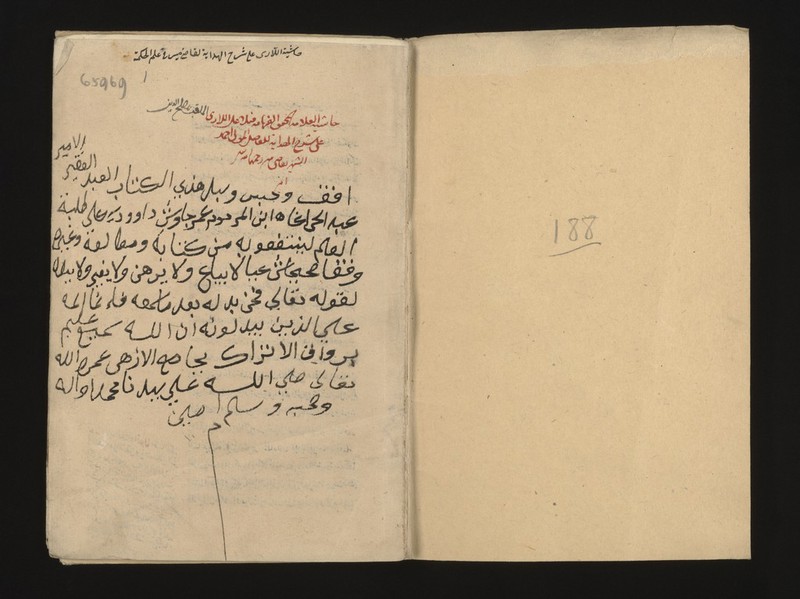 حاشية اللارى على شرح الهداية لقاضى مير فى علم الحكمة
65969
حاشية العلامة المحقق الفهامة منلا اللارى الملقب بمصلح الدين
على شرح الهداية للفاضل المولى احمد
الشهير بقاضى مير رحمهما
الله
اوقف وحبس وسبل هذى الكتاب العبد الفقير الامير
عبد الرحمن اغاه ابن المرحوم عمر جاويش داوودية على طلبة
العلم لينتفعو به من كتابة ومطالعة وغيره
وقفا صحيحا شرعيا لا يباع ولا يرهن ولا يغير ولا يبدل
لقوله تعالى فمن بدله بعد ما سمعه فانما اثمه
على الذين يبدلونه ان الله سميع عليم
برواق الاتراك بجامع الازهر عمره الله
تعالى صلى الله على سيدنا محمد واله
وصحبه وسلم امين
م
188